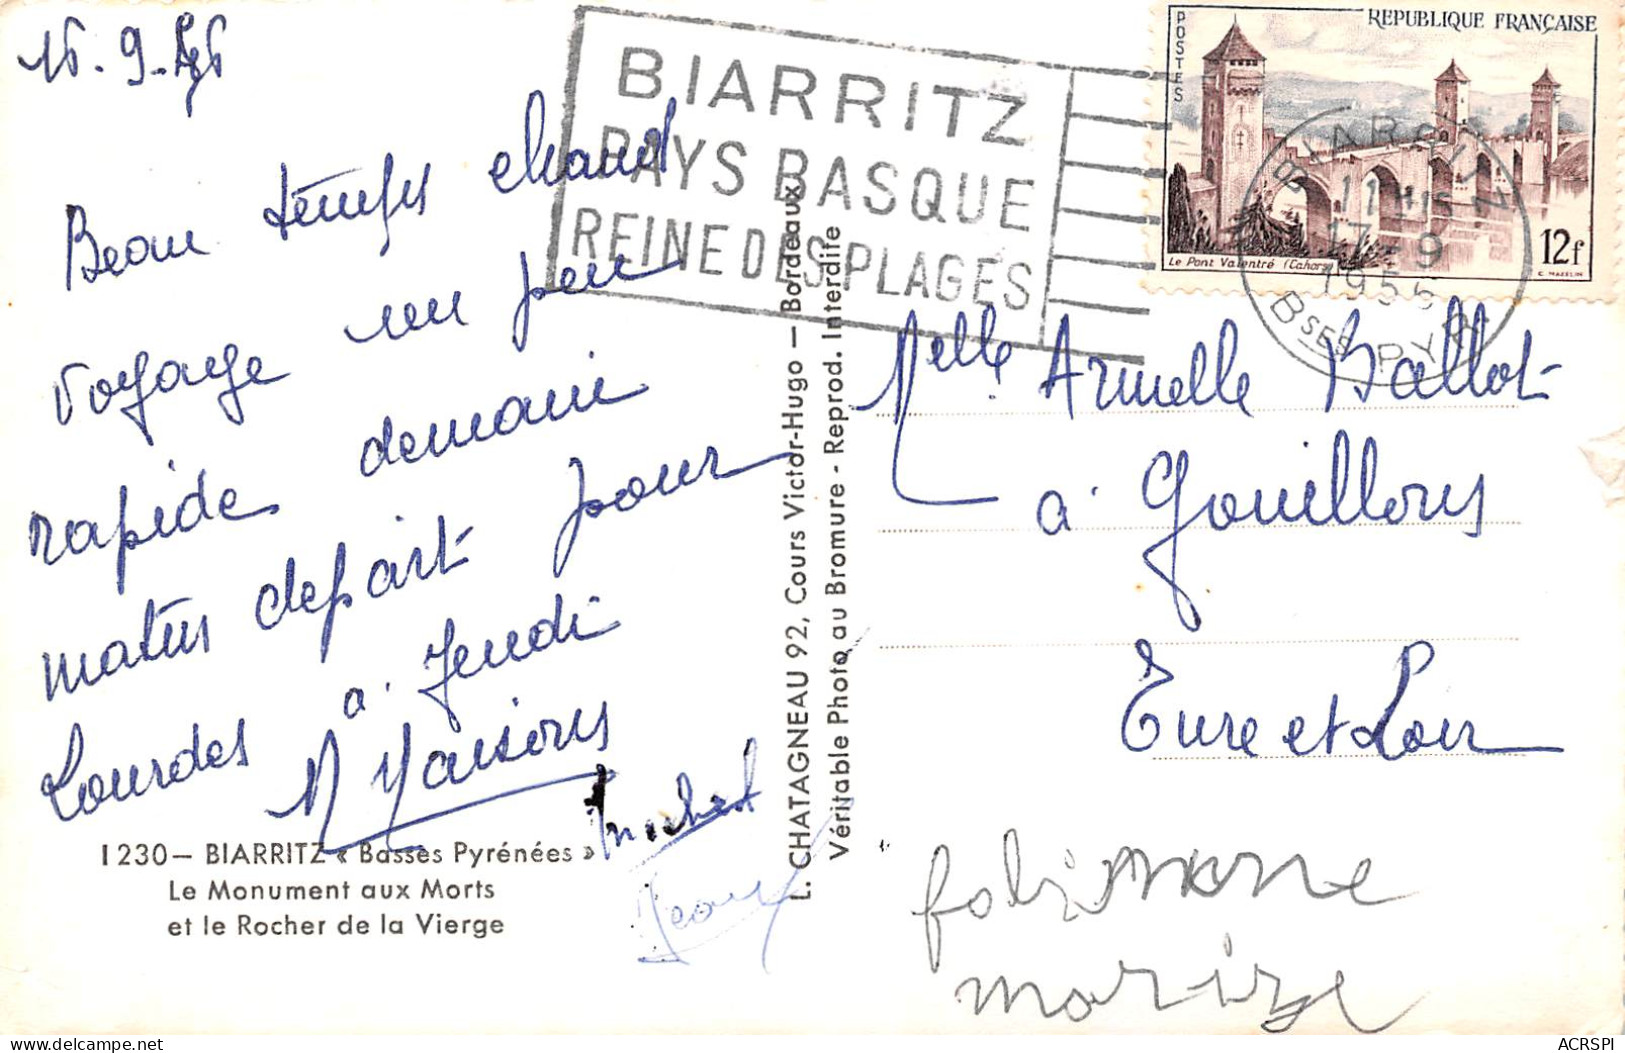 16-9-56
Beau temps chaud
voyage un peu
rapide demain
matin depart pour
Lourdes a Jeudi
M Maisons
Michel
Jean
1230 — BIARRITZ « Basses Pyrénées »
Le Monument aux Morts
et le Rocher de la Vierge
L. CHATAGNEAU 92, Cours Victor-Hugo — Bordeaux
Véritable Photo au Bromure - Reprod. Interdite
BIARRITZ
PAYS BASQUE
REINE DES PLAGES
POSTES
REPUBLIQUE FRANÇAISE
Le Pont Valentré (Cahors)
12f
C. MAZELIN
BIARRITZ
11H15
17-9
1956
BSES PYR
Melle Armelle Ballot
à Gouillons
Eure et Loir
fabienne
marize
ACRSPI